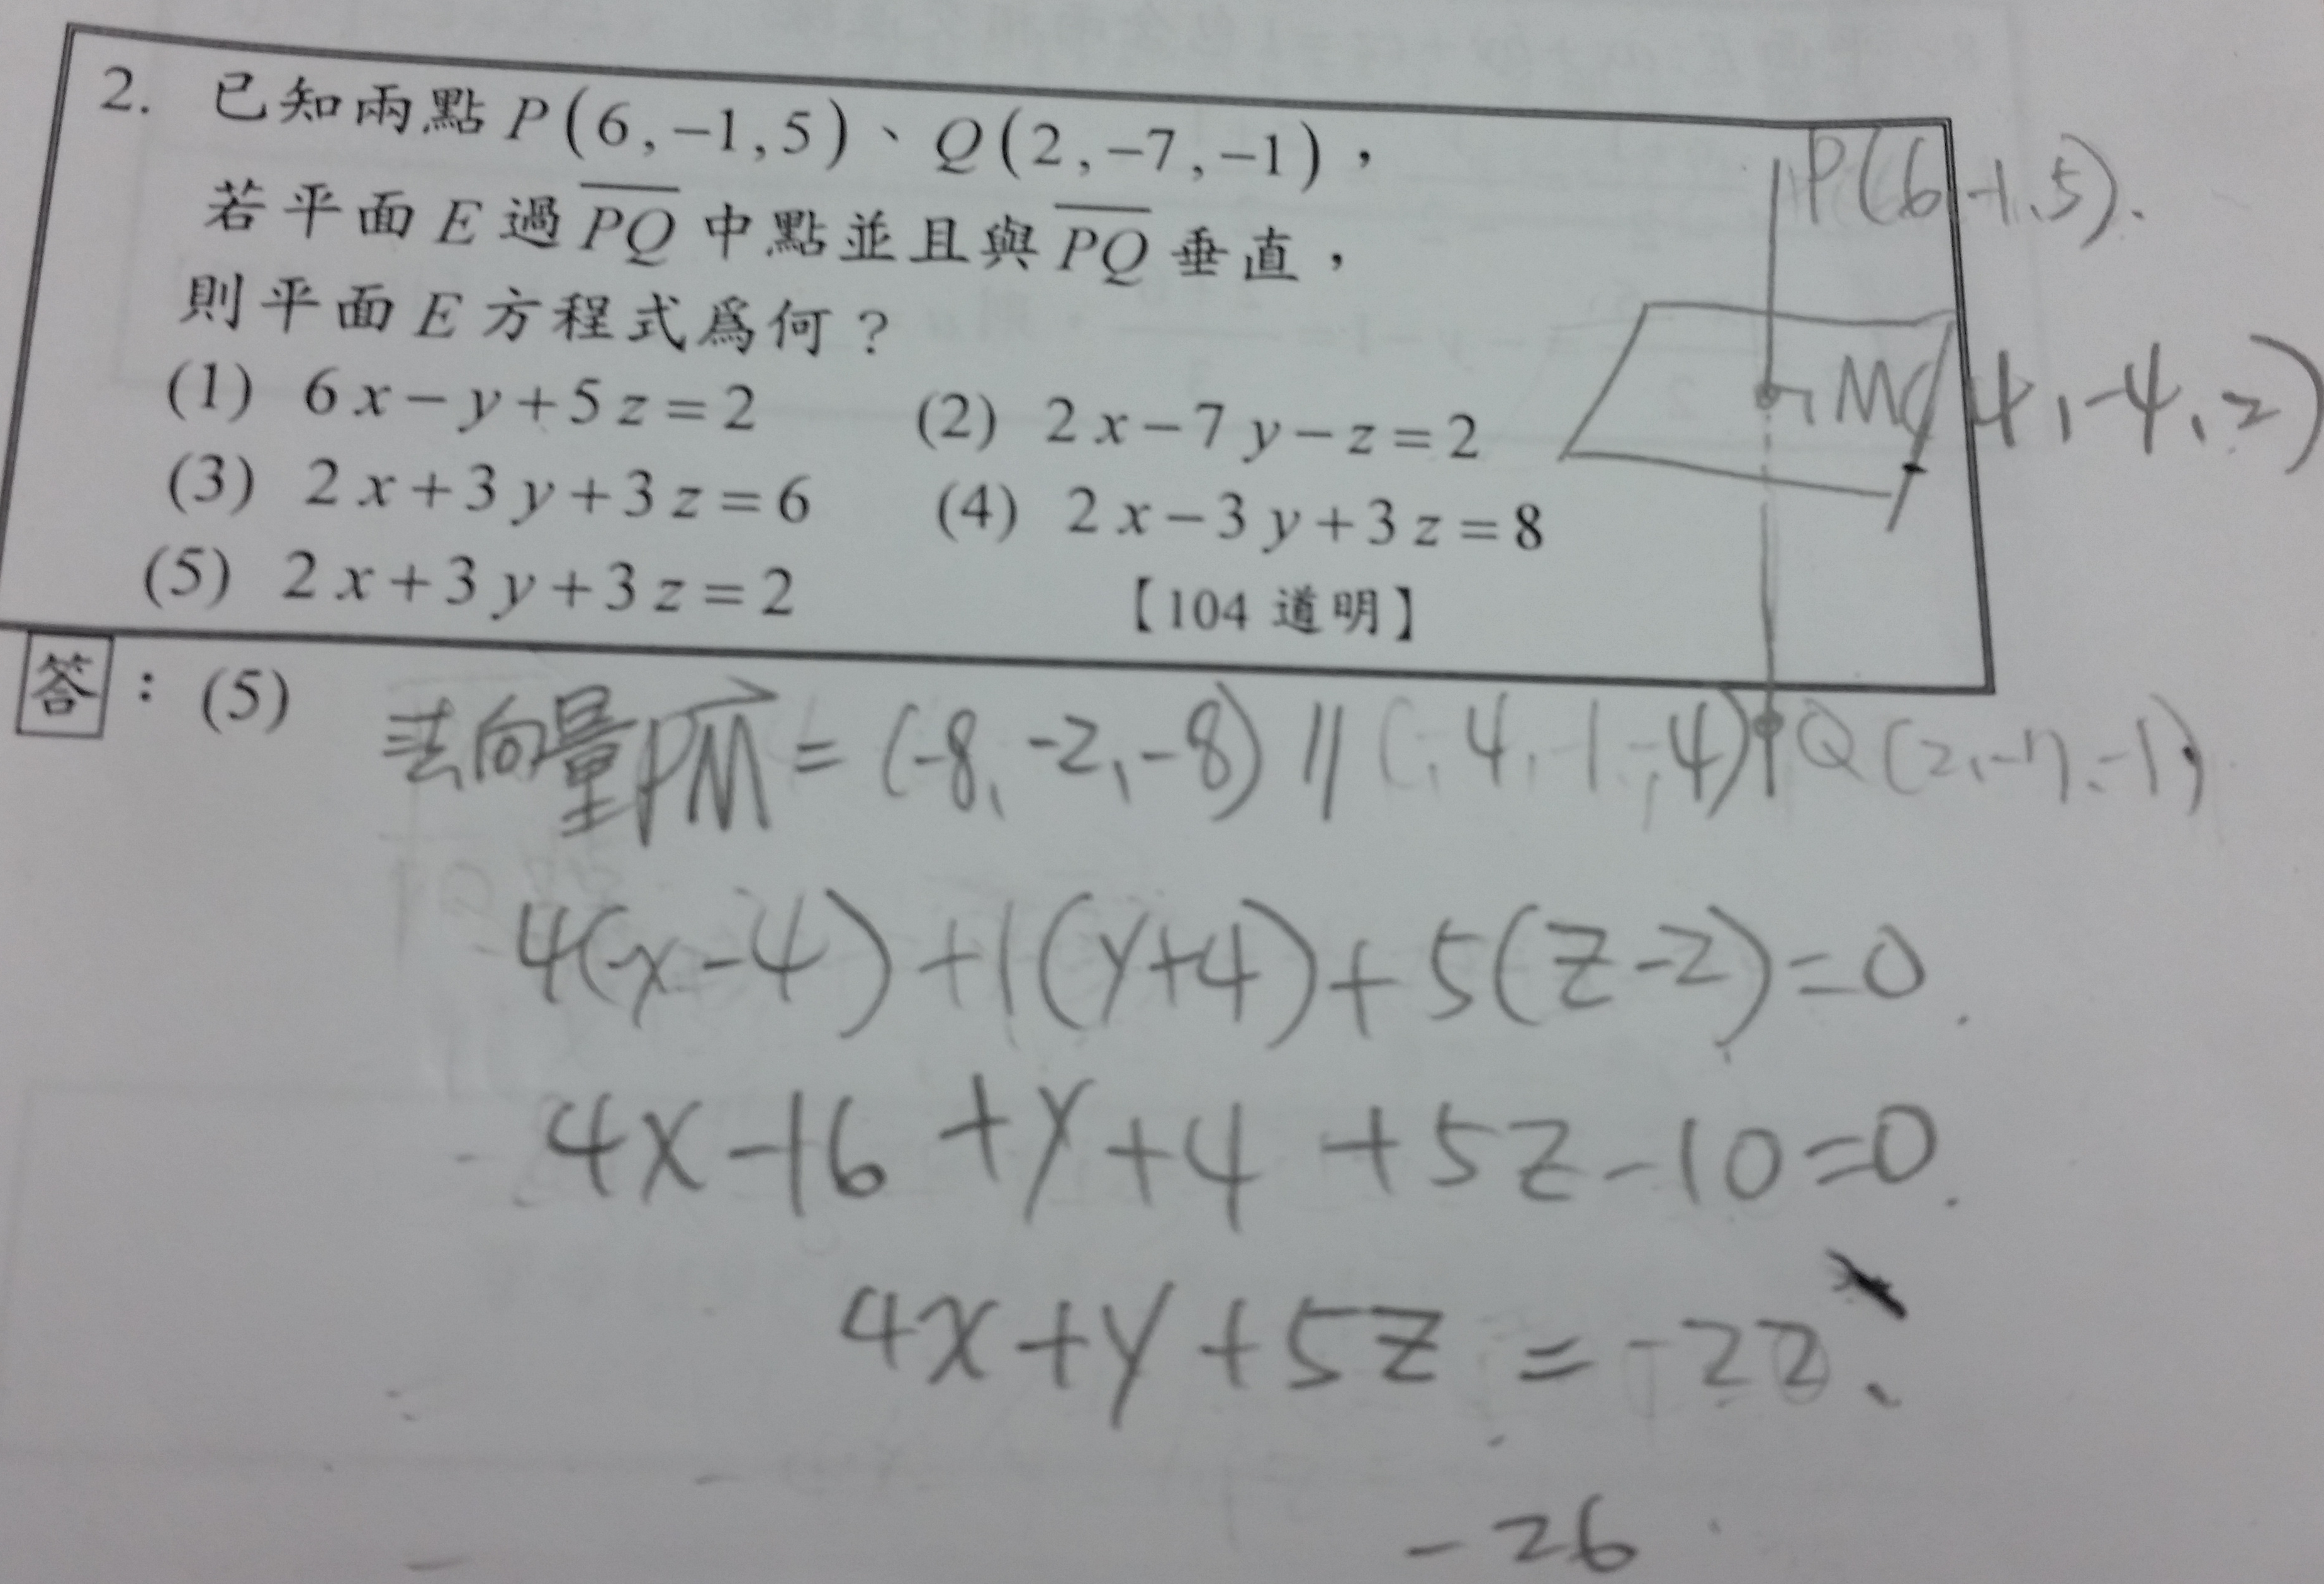 2. 已知兩點 P(6,-1,5)、Q(2,-7,-1)，
若平面 E 過 PQ 中點並且與 PQ 垂直，
則平面 E 方程式為何？
(1) 6x-y+5z=2 (2) 2x-7y-z=2
(3) 2x+3y+3z=6 (4) 2x-3y+3z=8
(5) 2x+3y+3z=2 【104 道明】
P(6,-1,5).
M(4,-4,2)
Q(2,-7,-1)
答：(5)
法向量PM = (-8,-2,-8) // (-4,-1,-4)
4(x-4)+1(y+4)+5(z-2)=0.
4x-16+y+4+5z-10=0.
4x+y+5z=-22
-26